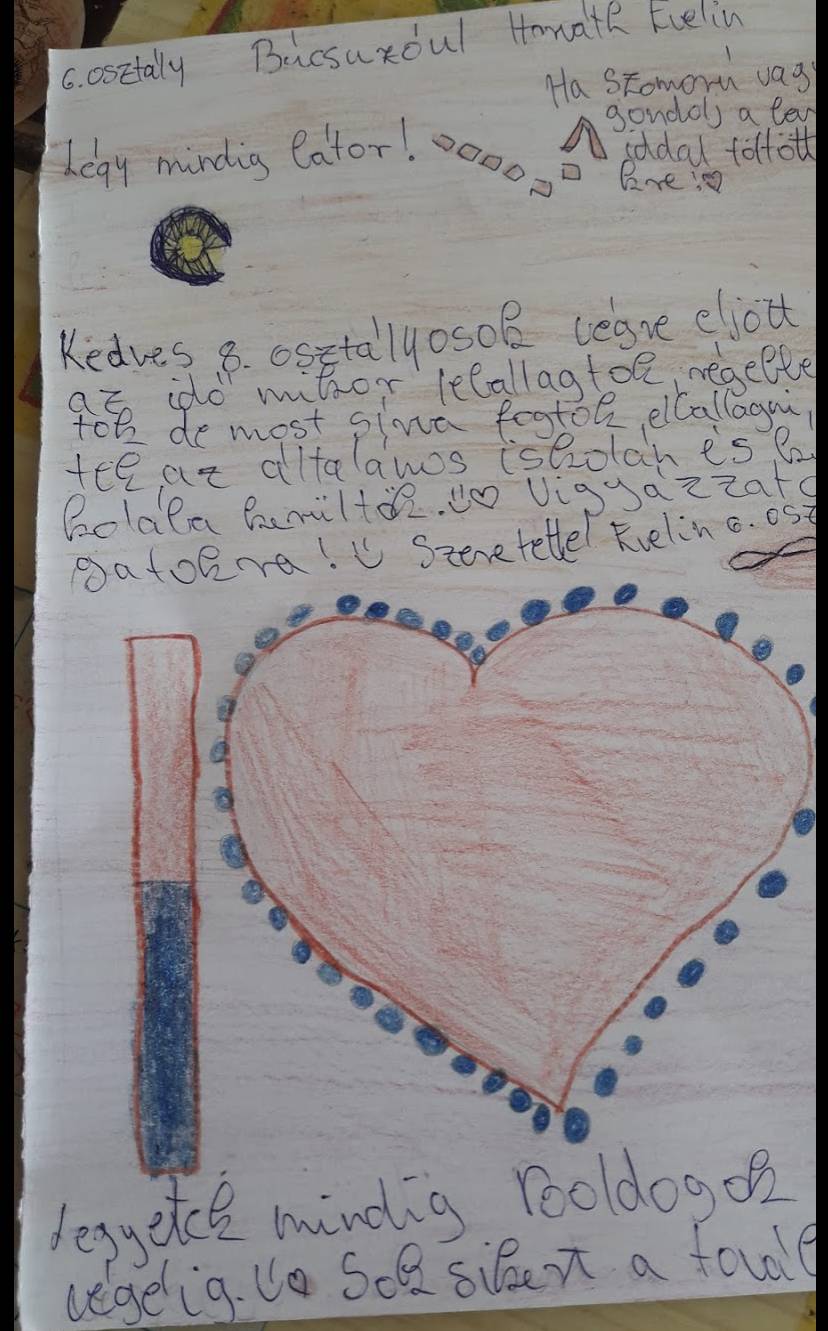 6. osztály Búcsuzóul Horváth Evelin
Ha szomorú vagy
gondolj a
Légy mindig bátor!
iddal töltött
kre!♡
Kedves 8. osztályosok végre eljött
az idő mikor leballagtok,
tok de most sírva fogtok elballagni,
tek az általános iskolán és
kolába kerültök. Vigyázzato
gatokra! Szeretettel Evelin 6. osz
Legyetek mindig booldogok
végéig. Sok sikert a